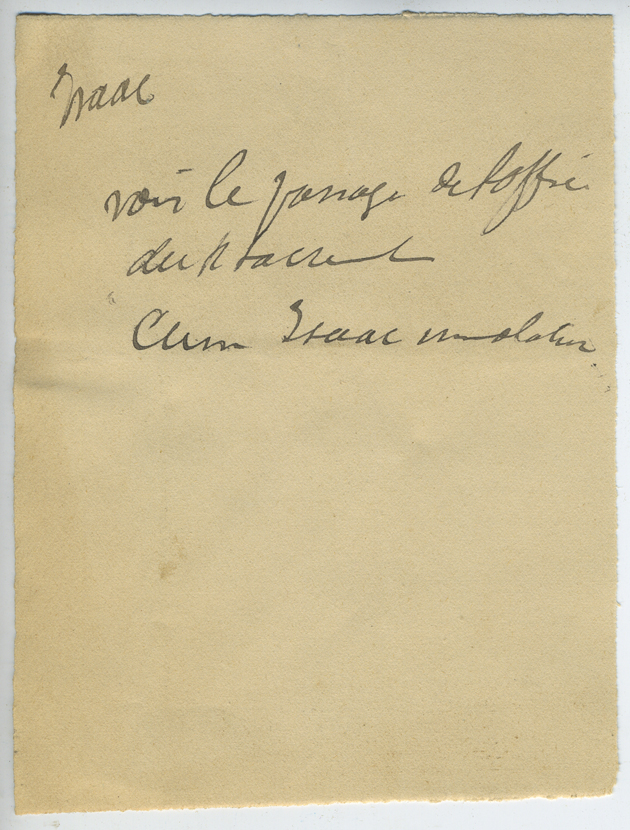 Isaac
voir le passage de l'office
du St Sacrement
Cum Isaac immolatur